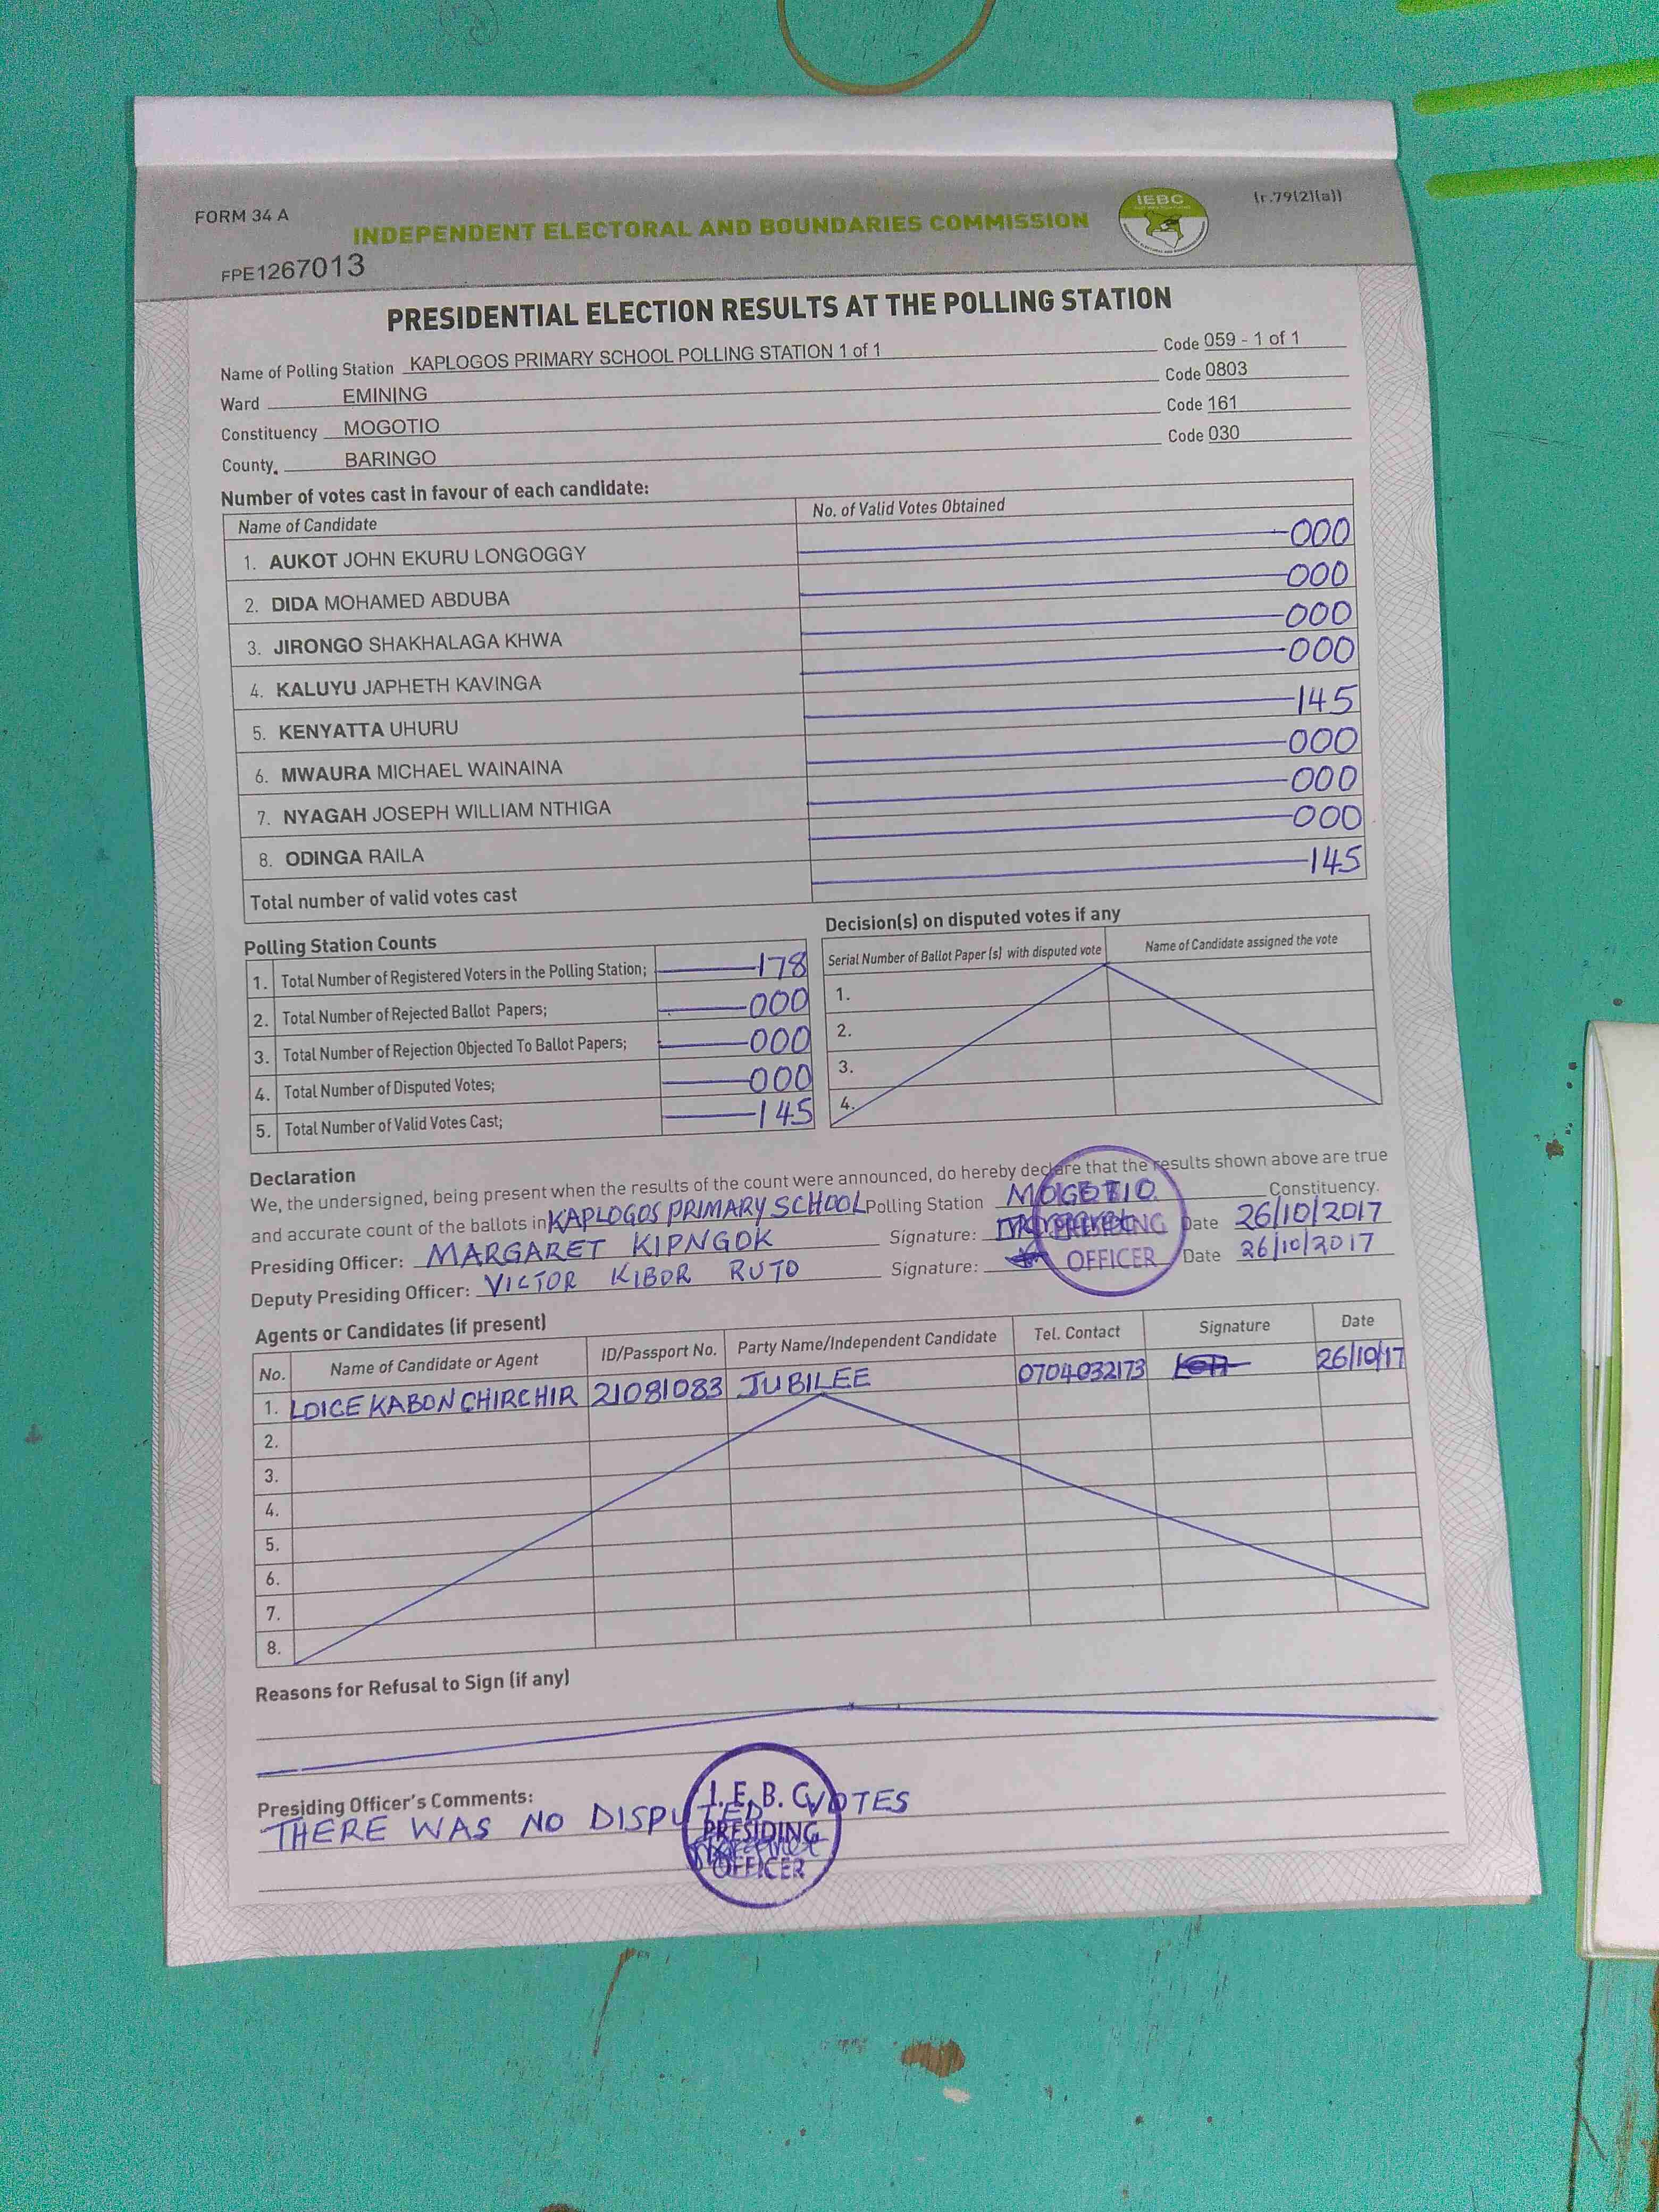 FORM 34 A
(r.79(2)(a))
IEBC
INDEPENDENT ELECTORAL AND BOUNDARIES COMMISSION
FPE1267013
PRESIDENTIAL ELECTION RESULTS AT THE POLLING STATION
Name of Polling Station KAPLOGOS PRIMARY SCHOOL POLLING STATION 1 of 1 Code 059 - 1 of 1
Ward EMINING Code 0803
Constituency MOGOTIO Code 161
County BARINGO Code 030
Number of votes cast in favour of each candidate:
Name of Candidate No. of Valid Votes Obtained
1. AUKOT JOHN EKURU LONGOGGY 000
2. DIDA MOHAMED ABDUBA 000
3. JIRONGO SHAKHALAGA KHWA 000
4. KALUYU JAPHETH KAVINGA 000
5. KENYATTA UHURU 145
6. MWAURA MICHAEL WAINAINA 000
7. NYAGAH JOSEPH WILLIAM NTHIGA 000
8. ODINGA RAILA 000
Total number of valid votes cast 145
Polling Station Counts
1. Total Number of Registered Voters in the Polling Station; 178
2. Total Number of Rejected Ballot Papers; 000
3. Total Number of Rejection Objected To Ballot Papers; 000
4. Total Number of Disputed Votes; 000
5. Total Number of Valid Votes Cast; 145
Decision(s) on disputed votes if any
Serial Number of Ballot Paper (s) with disputed vote Name of Candidate assigned the vote
1.
2.
3.
4.
Declaration
We, the undersigned, being present when the results of the count were announced, do hereby declare that the results shown above are true
and accurate count of the ballots in KAPLOGOS PRIMARY SCHOOL Polling Station MOGOTIO Constituency.
Presiding Officer: MARGARET KIPNGOK Signature: Margaret Date 26/10/2017
Deputy Presiding Officer: VICTOR KIBOR RUTO Signature: Date 26/10/2017
PRESIDING
OFFICER
Agents or Candidates (if present)
No. Name of Candidate or Agent ID/Passport No. Party Name/Independent Candidate Tel. Contact Signature Date
1. LOICE KABON CHIRCHIR 21081083 JUBILEE 0704032173 26/10/17
2.
3.
4.
5.
6.
7.
8.
Reasons for Refusal to Sign (if any)
Presiding Officer's Comments:
THERE WAS NO DISPUTED VOTES
I.E.B.C
PRESIDING
OFFICER